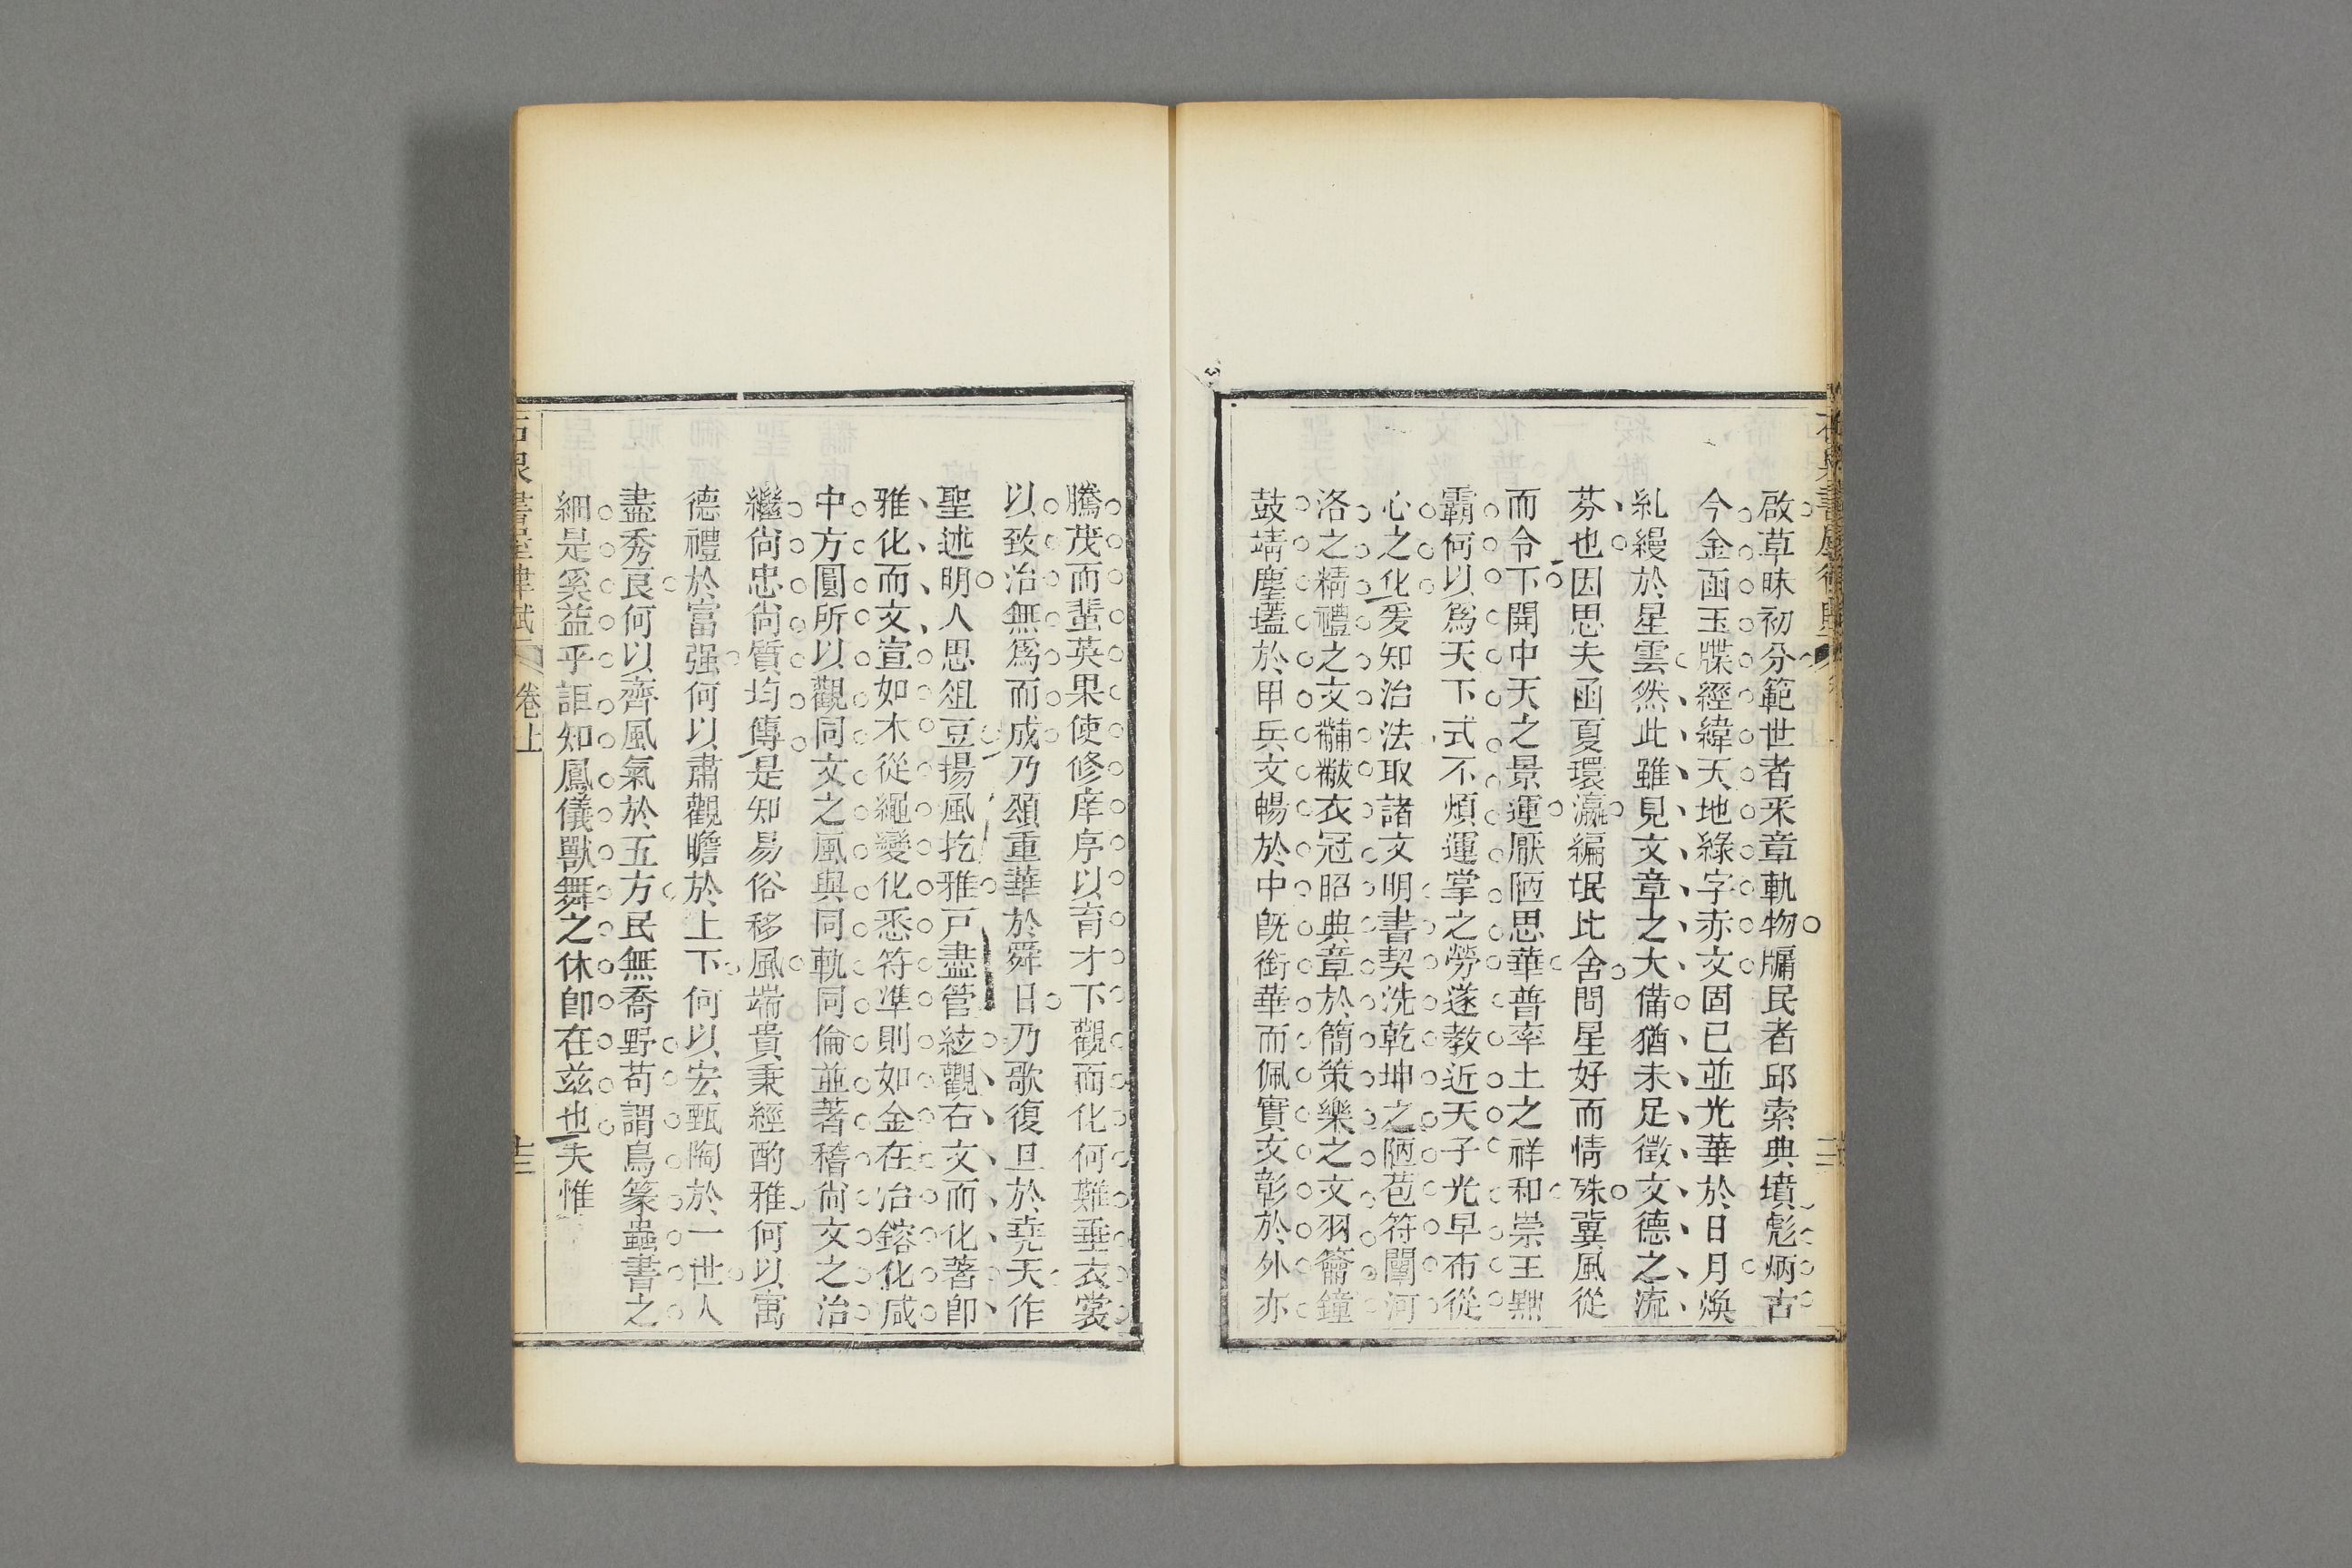 啟草昧初分範世者采章軌物牖民者邱索典墳彪炳古
今金函玉牒經緯天地綠字赤文固已並光華於日月煥
糺縵於星雲然此雖見文章之大備猶未足徵文德之流
芬也因思夫函夏環瀛編氓比舍問星好而情殊冀風從
而令下開中天之景運厭陋思華普率土之祥和崇王黜
霸何以爲天下式不煩運掌之勞遂教近天子光早布從
心之化爰知治法取諸文明書契洗乾坤之陋苞符闡河
洛之精禮之文黼黻衣冠昭典章於簡策樂之文羽籥鐘
鼓靖塵壒於甲兵文暢於中旣銜華而佩實文彰於外亦
騰茂而蜚英果使修庠序以育才下觀而化何難垂衣裳
以致治無爲而成乃頌重華於舜日乃歌復旦於堯天作
聖述明人思俎豆揚風扢雅戸盡管絃觀右文而化著卽
雅化而文宣如木從繩變化悉符準則如金在冶鎔化咸
中方圓所以觀同文之風與同軌同倫並著稽尙文之治
繼尙忠尙質均傳是知易俗移風端貴秉經酌雅何以寓
德禮於富强何以肅觀瞻於上下何以宏甄陶於一世人
盡秀良何以齊風氣於五方民無喬野苟謂鳥篆蟲書之
細是奚益乎詎知鳳儀獸舞之休卽在兹也夫惟
書屋律賦 卷上